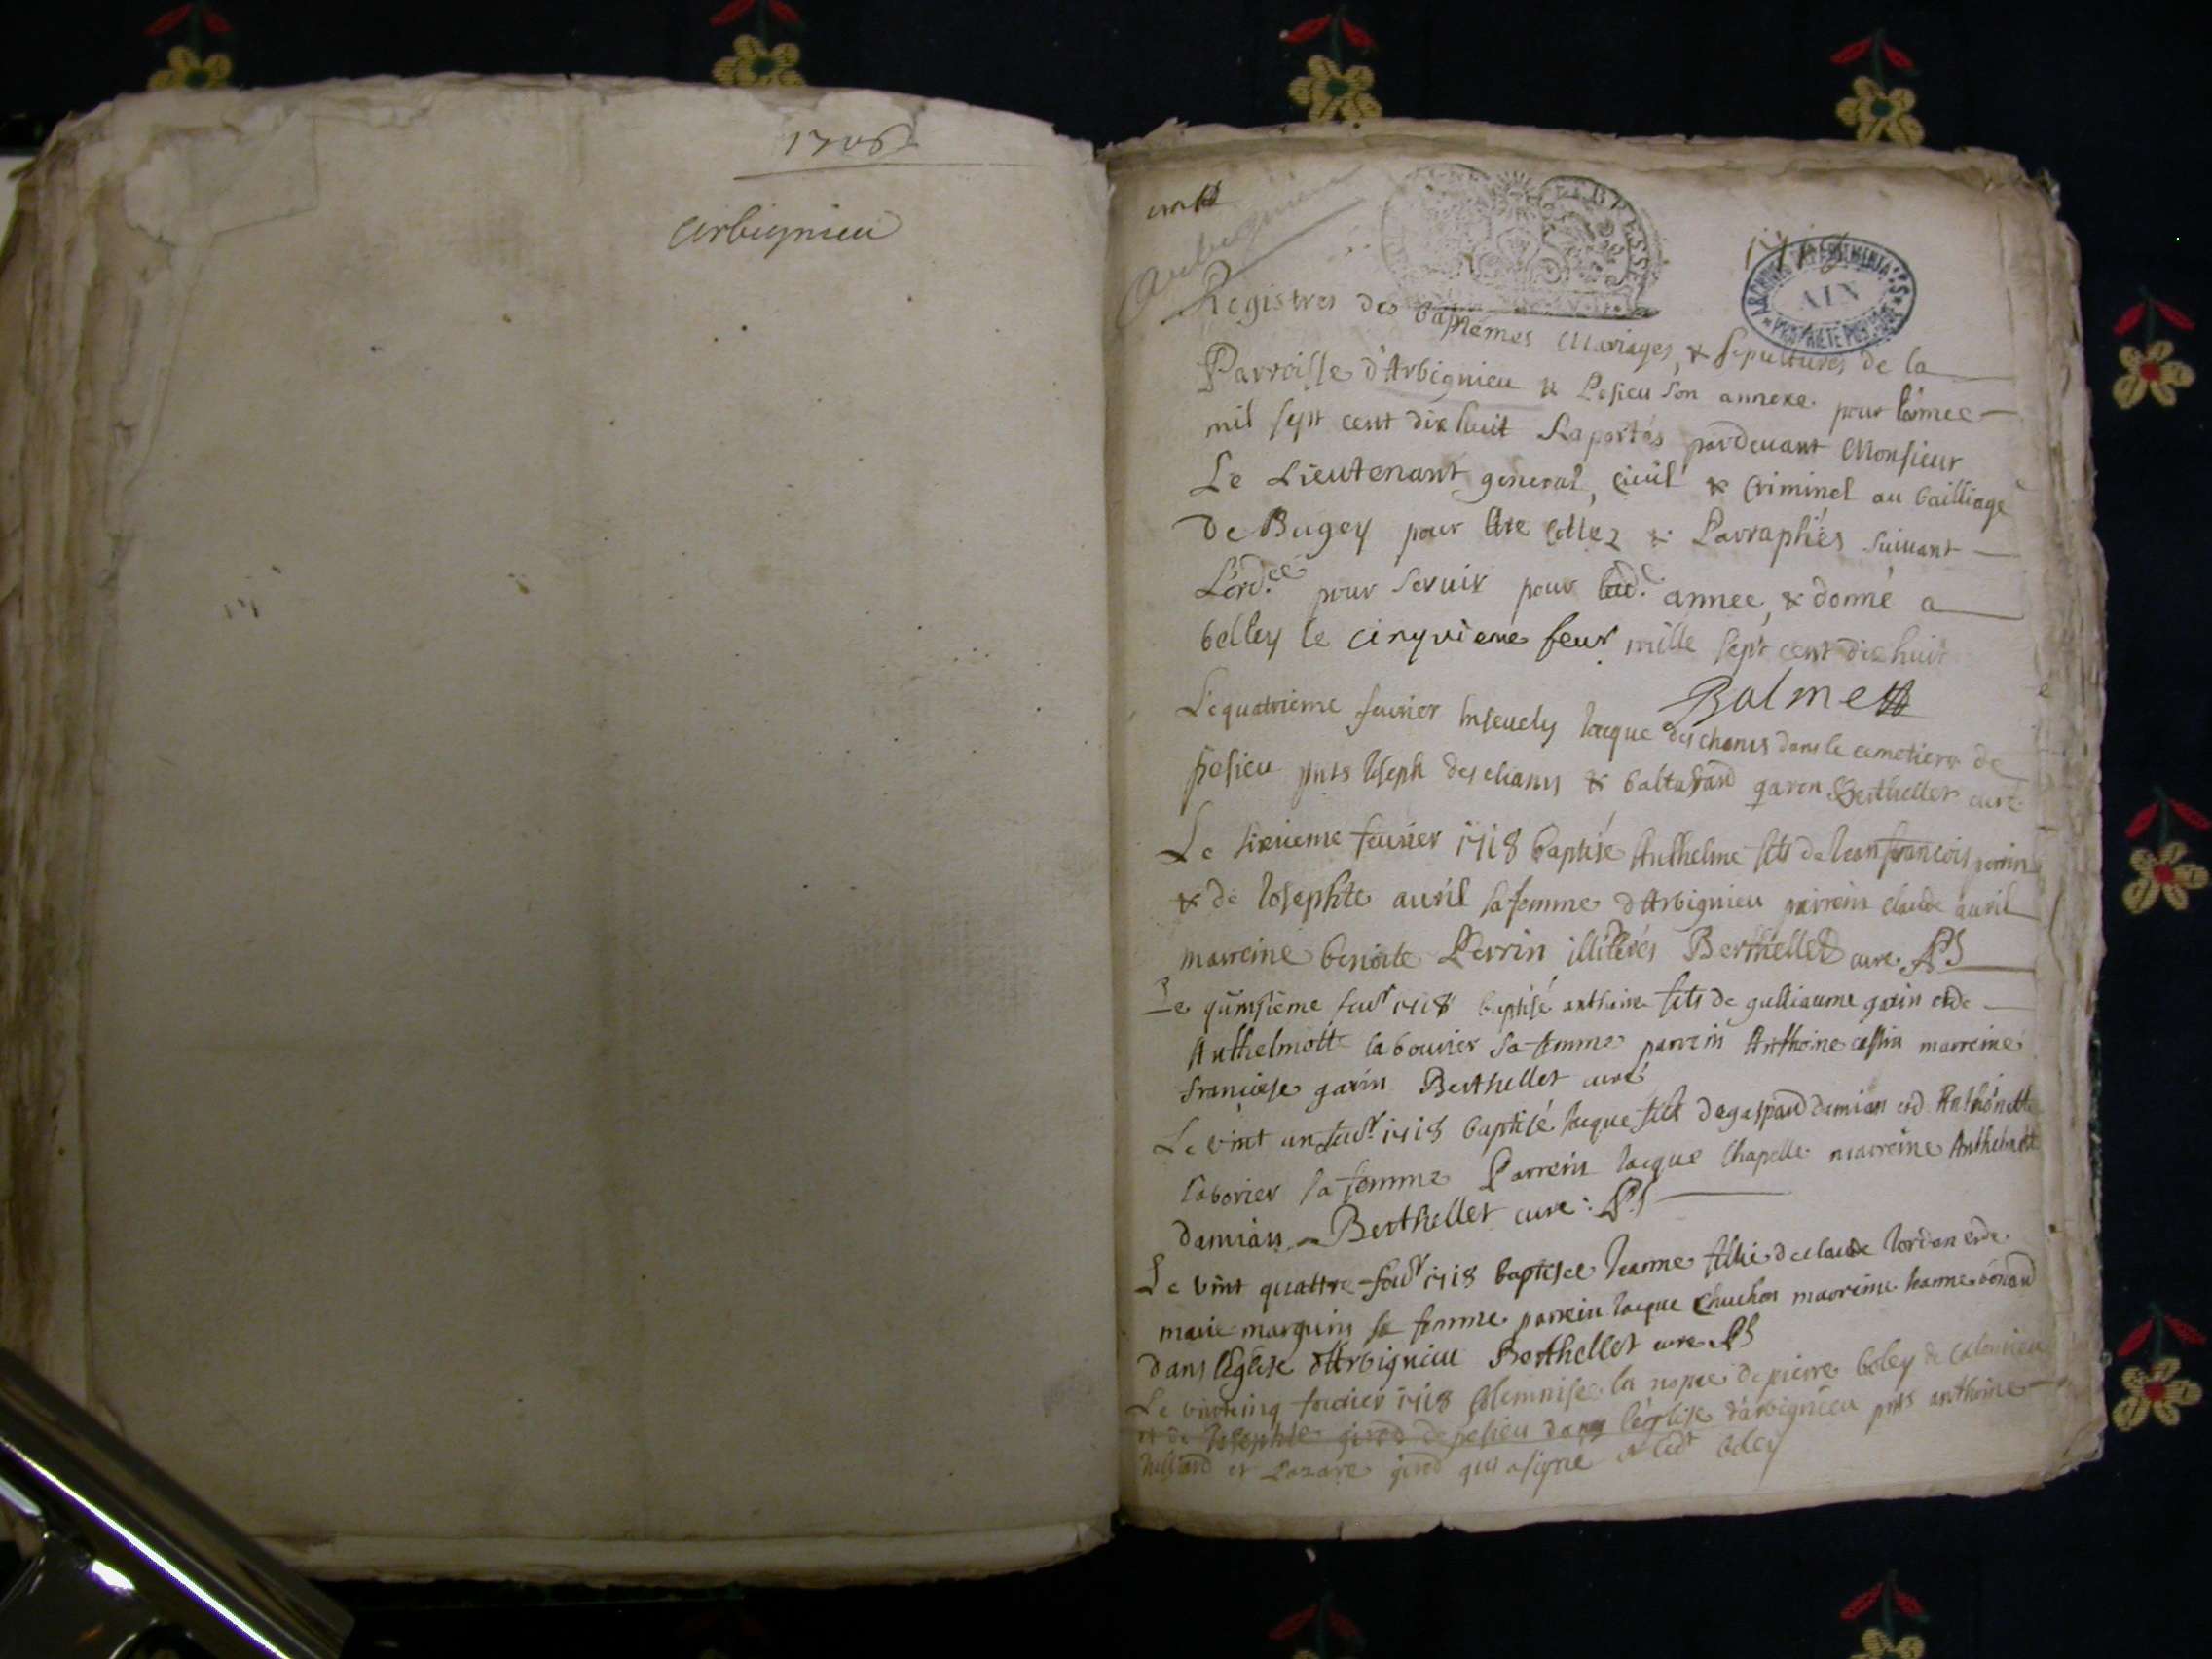 1706
arbignieu
arbignieu
BRESSE
1718
ARCHIVES DEPARTEMENTALES
AIN
PROPRIETE PUBLIQUE
Registres des baptêmes Mariages, & sepultures de la
Parroisse d'Arbignieu & Pesieu son annexe pour lannee
mil sept cent dix huit Raportés pardevant Monsieur
Le Lieutenant general, civil & Criminel au bailliage
de Bugey pour être Cottez & Parraphés suivant
L'ord.ce pour servir pour lad.e annee, & donné a
belley le cinqvieme feur mille sept cent dix huit
Balme
Le quatrieme fevrier Inseuely Iacque des chams dans le cemetiere de
pesieu pnts Ioseph des chams & baltasard garon Berthellet curé
Le sixieme fevrier 1718 baptisé Anthelme fils de Iean francois perrin
& de Iosephte avril sa femme d'Arbignieu parrein claude avril
marreine benoite Perrin illiterés Berthellet cure
Le quinsieme feur 1718 baptisé anthoine fils de gulliaume garin et de
Anthelmotte la bouvier sa femme parrein Anthoine marreine
francoise garin Berthellet curé
Le vint un feur. 1718 baptisé Iacque fils de gaspard damian et d Anthonette
laborier sa femme Parrein Iacque Chapelle marreine Anthelmotte
damian Berthellet cure
Le vint quattre feur 1718 baptisee Ieanne fillie de claude Iordan et de
marie marquin sa femme parrein Iacque Chuchon marreine Ieanne
dans l'Eglise d'Arbignieu Berthellet cure
Le vint cinq fevrier 1718 solemnise la nopce de pierre boley de
et de Iosephte girod de pesieu dans l'église d'arbignieu pnts anthoine
et Lazare girod qui a signe & led.t boley